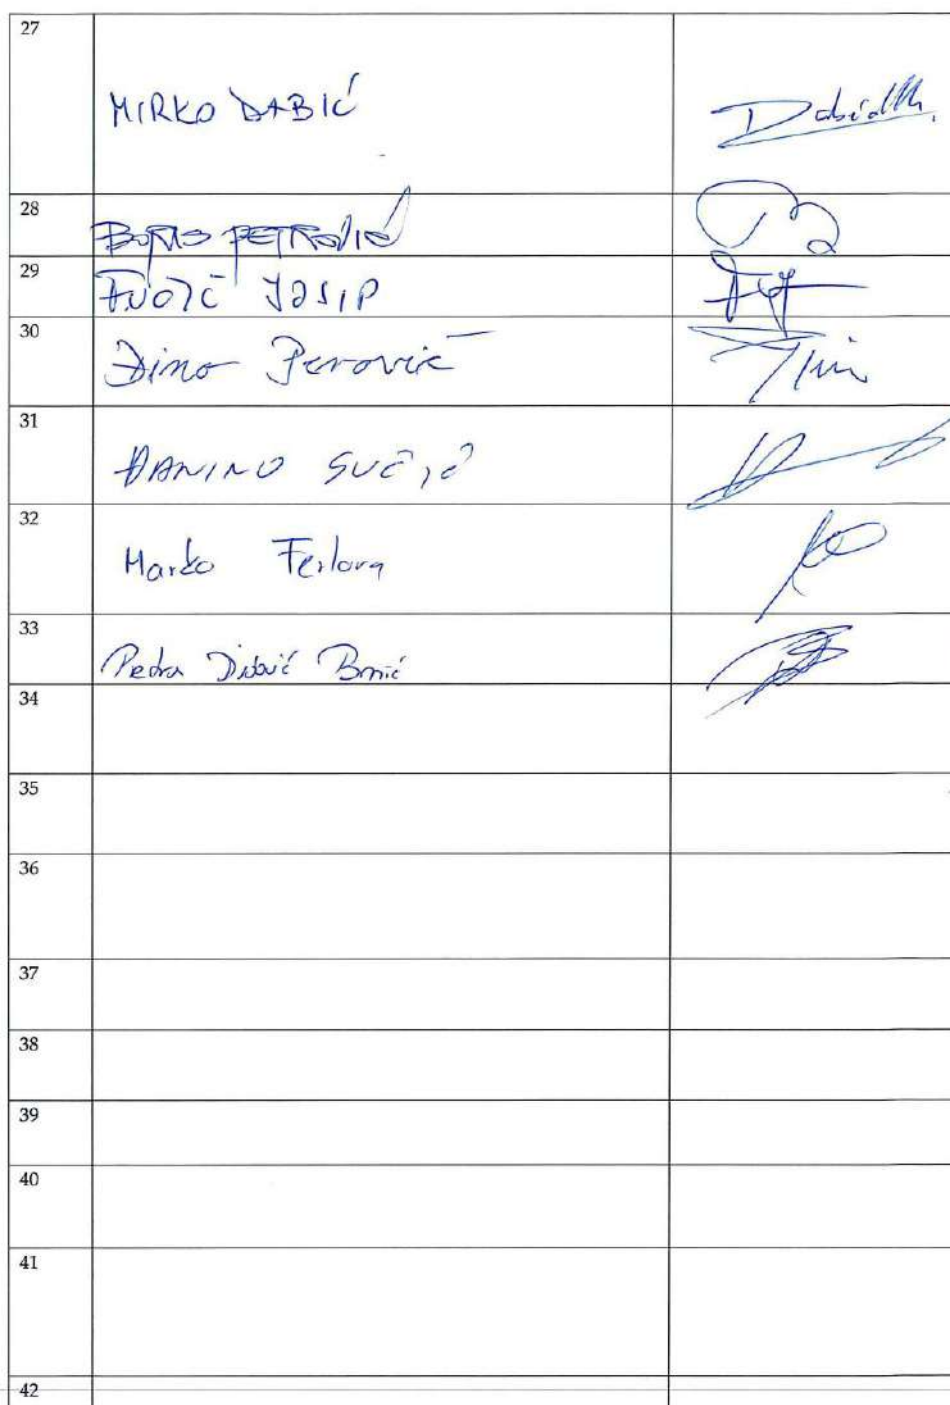 27
MIRKO DABIĆ
Dabić M.
28
BORIS PETROVIĆ
29
JOSIP
30
Dino Perović
31
DANINO SUČIĆ
32
Marko Ferlora
33
Pedra Brnić
34
35
36
37
38
39
40
41
42